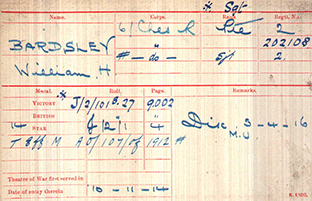 * Sgt
Name. Corps. Rank. Regtl. No.
BARDSLEY 6/Ches R Pte 2
202108
William. H # -do- Sgt 2.
Medal. Roll. Page. Remarks.
VICTORY * J/2/101 B.27 9,002
BRITISH
14 STAR 4 Dis. 3-4-16
T Eff M 1912 #
Theatre of War first served in
Date of entry therein 10-11-14
K. 1380.